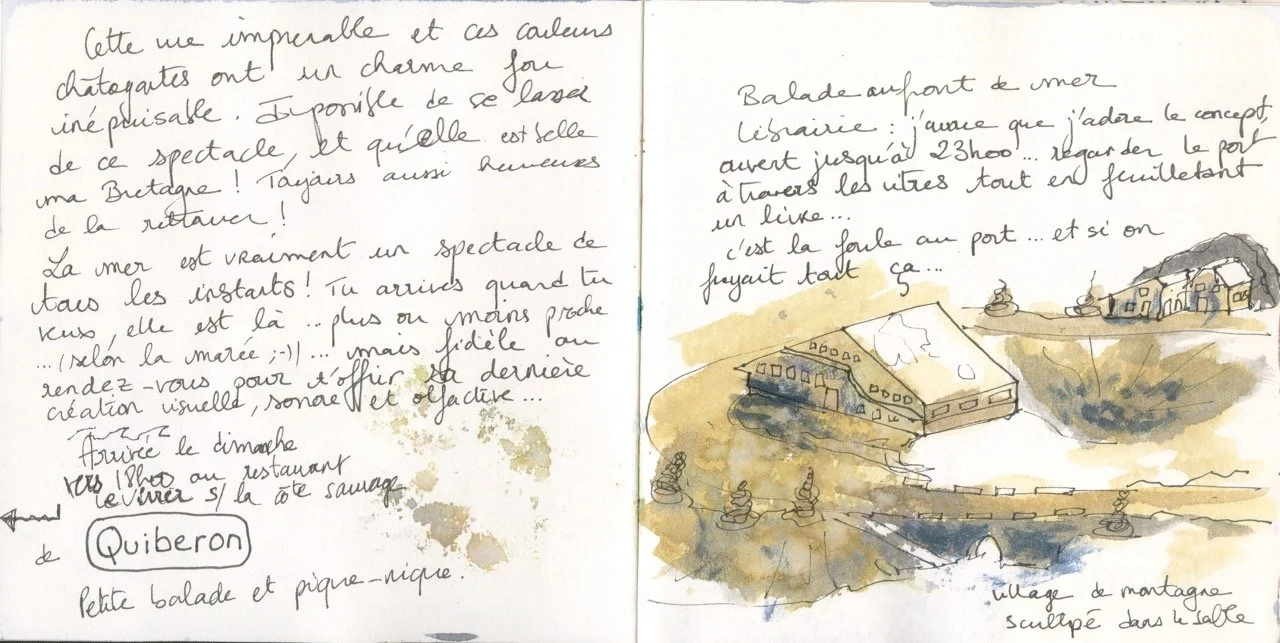 Cette vue imprenable et ces couleurs
châtoyantes ont un charme fou
inépuisable. Impossible de se lasser
de ce spectacle, et qu'elle est belle
ma Bretagne ! Toujours aussi heureuse
de la retrouver !
La mer est vraiment un spectacle de
tous les instants ! Tu arrives quand tu
veux, elle est là ... plus ou moins proche
... (selon la marée ;-)) ... mais fidèle au
rendez-vous pour t'offrir sa dernière
création visuelle, sonore et olfactive...
Arrivée le dimanche
vers 18h00 au restaurant
le vivier s/ la côte sauvage
de Quiberon
Petite balade et pique-nique.
Balade au front de mer
Librairie : j'avoue que j'adore le concept,
ouvert jusqu'à 23h00... regarder le port
à travers les vitres tout en feuilletant
un livre...
c'est la foule au port ... et si on
fuyait tout ça...
village de montagne
sculpté dans le sable